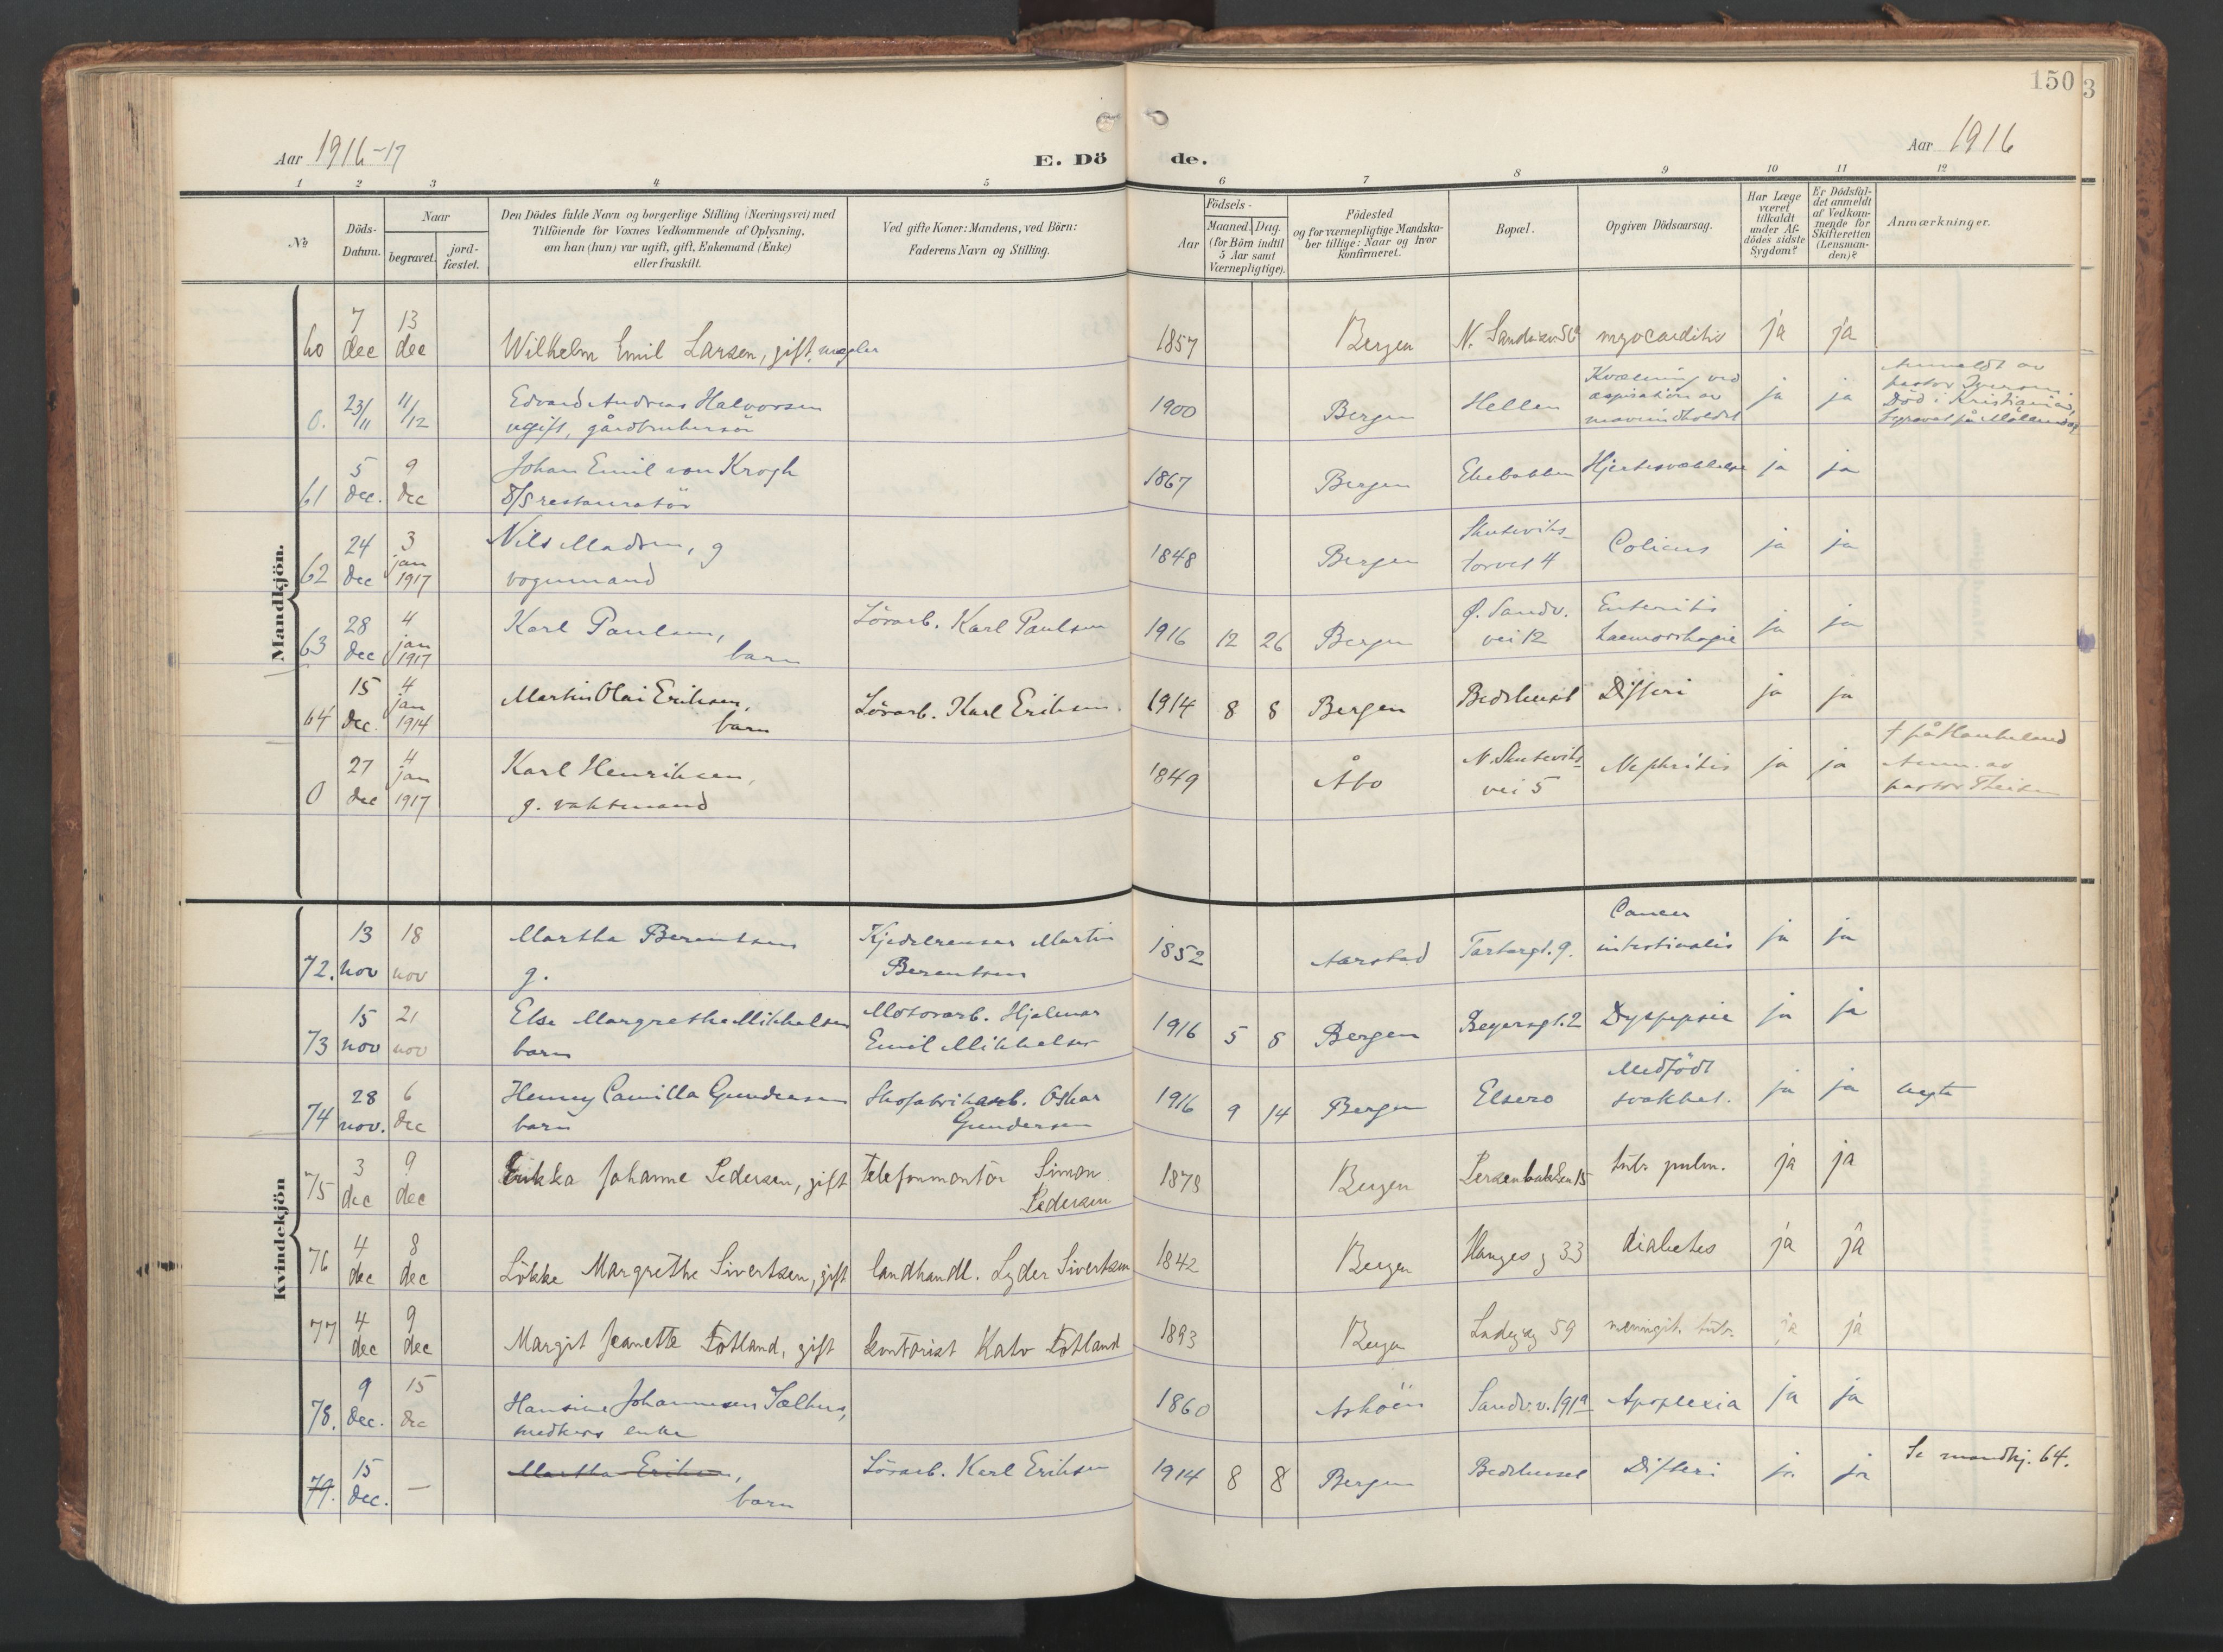 150
3
Aar 1916-17
E. Dö
de.
Aar 1916
1 2 3 4 5 6 7 8 9 10 11 12
No
Döds-Datum.
Naar
begravet.
jord-fæstet.
Den Dödes fulde Navn og borgerlige Stilling (Næringsvei) med
Tilföiende for Voxnes Vedkommende af Oplysning,
om han (hun) var ugift, gift, Enkemand (Enke)
eller fraskilt.
Ved gifte Koner: Mandens, ved Börn:
Faderens Navn og Stilling.
Aar
Födsels-
Maaned. Dag.
(for Börn indtil
5 Aar samt
Værnepligtige).
Födested
og for værnepligtige Mandska-
ber tillige: Naar og hvor
konfirmeret.
Bopæl.
Opgiven Dödsaarsag.
Har Læge
været
tilkaldt
under Af-
dödes sidste
Sygdom?
Er Dödsfal-
det anmeldt
af Vedkom-
mende for
Skifteretten
(Lensman-
den)?
Anmærkninger.
Mandkjön.
60 7 dec 13 dec Wilhelm Emil Larsen, gift, mægler 1857 Bergen N. Sandv.v. myocarditis ja ja
0. 23/11 11/12 Edvard Andreas Halvorsen
ugift, gårdbrukersön 1900 Bergen Hellen Kvælning ved
aspiration av
maveindholdet ja ja Anmeldt av
pastor Iversen.
Död i Kristiania,
begravet på Möllendal
61 5 dec. 9 dec Johan Emil von Krogh
D/S restauratör 1867 Bergen Ekebakken Hjertesvækkelse ja ja
62 24 dec 3 jan 1917 Nils Madsen, g
vognmand 1848 Bergen Skuteviks-
torvet 4 Colicus ja ja
63 28 dec 4 jan 1917 Karl Paulsen,
barn Lösarb. Karl Paulsen 1916 12 26 Bergen Ø. Sandv.
vei 12 Enteritis
haemorrhagie ja ja
64 15 dec. 4 jan 1914 Martin Olai Eriksen,
barn Lösarb. Karl Eriksen. 1914 8 8 Bergen Bedehuset Difteri ja ja
0 27 dec 4 jan 1917 Karl Henriksen,
g. vaktmand 1849 Åbo N. Skuteviks-
vei 5 Nephritis ja ja † på Haukeland
Anm. av
pastor Theisen
Kvindekjön
72. 13 nov 18 nov Martha Berentsen
g. Kjedelrenser Martin
Berentsen 1852 Aarstad Tartargt. 9. Cancer
intestinalis ja ja
73 15 nov 21 nov Else Margrethe Mikkelsen
barn Motorarb. Hjalmar
Emil Mikkelsen 1916 5 8 Bergen Beyersgt. 2 Dyspepsie ja ja
74 28 nov. 6 dec Henny Camilla Gundersen
barn Skofabrikarb. Oskar
Gundersen 1916 9 14 Bergen Elsero Medfödt
svakhet. ja ja uegte
75 3 dec 9 dec Erikka Johanne Pedersen, gift telefonmontör Simon
Pedersen 1878 Bergen Persenbakken 15 tub. pulm. ja ja
76 4 dec 8 dec Lökke Margrethe Sivertsen, gift landhandl. Lyder Sivertsen 1842 Bergen Hauges g 33 diabetes ja ja
77 4 dec 9 dec Margit Jeanette Totland, gift kontorist Kato Totland 1893 Bergen Ladeg.g 59 meningit. tub. ja ja
78. 9 dec. 15 dec Hansine Johannesen Sælhus,
snedkers enke 1860 Asköen Sandv.v. 191a Apoplexia ja ja
79. 15 dec. — Martha Eriksen,
barn Lösarb. Karl Eriksen 1914 8 8 Bergen Bedehuset Difteri ja ja Se mandkj. 64.